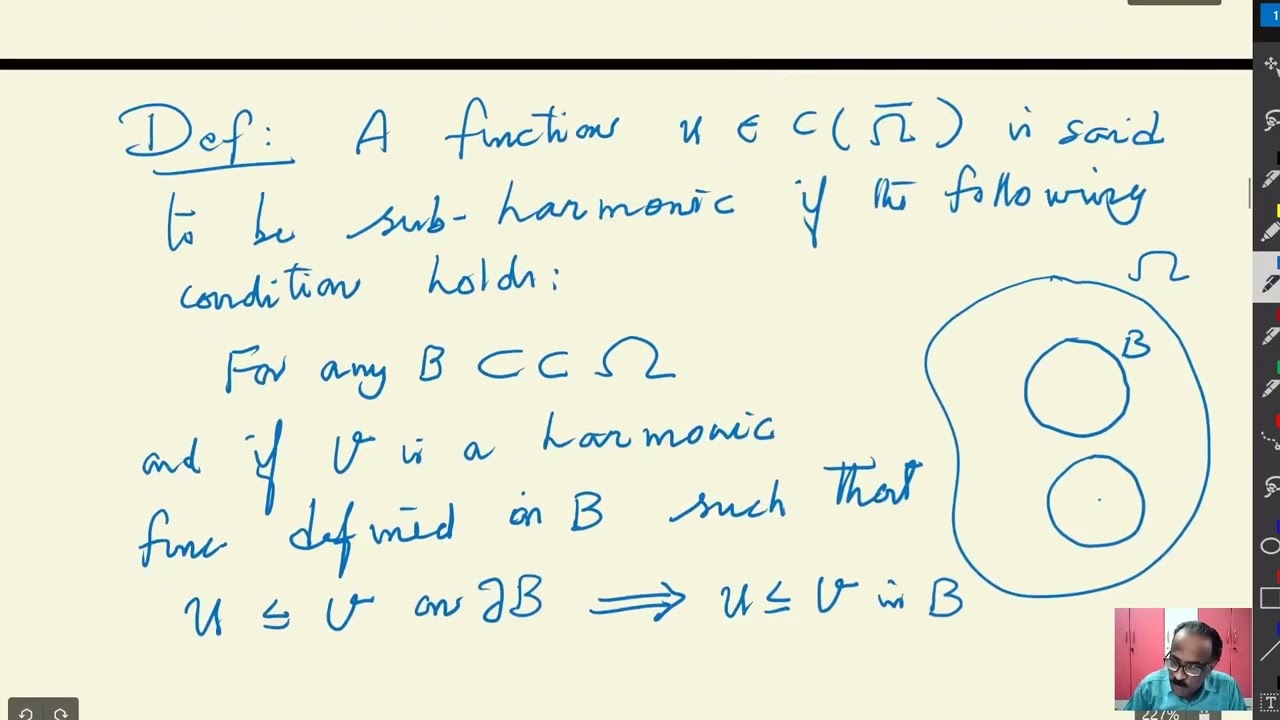 Def: A function u ∈ C(Ω̅) is said
to be sub-harmonic if the following
condition holds:
Ω
B
For any B ⊂⊂ Ω
and if v is a harmonic
func defined in B such that
u ≤ v on ∂B ⟹ u ≤ v in B
227%